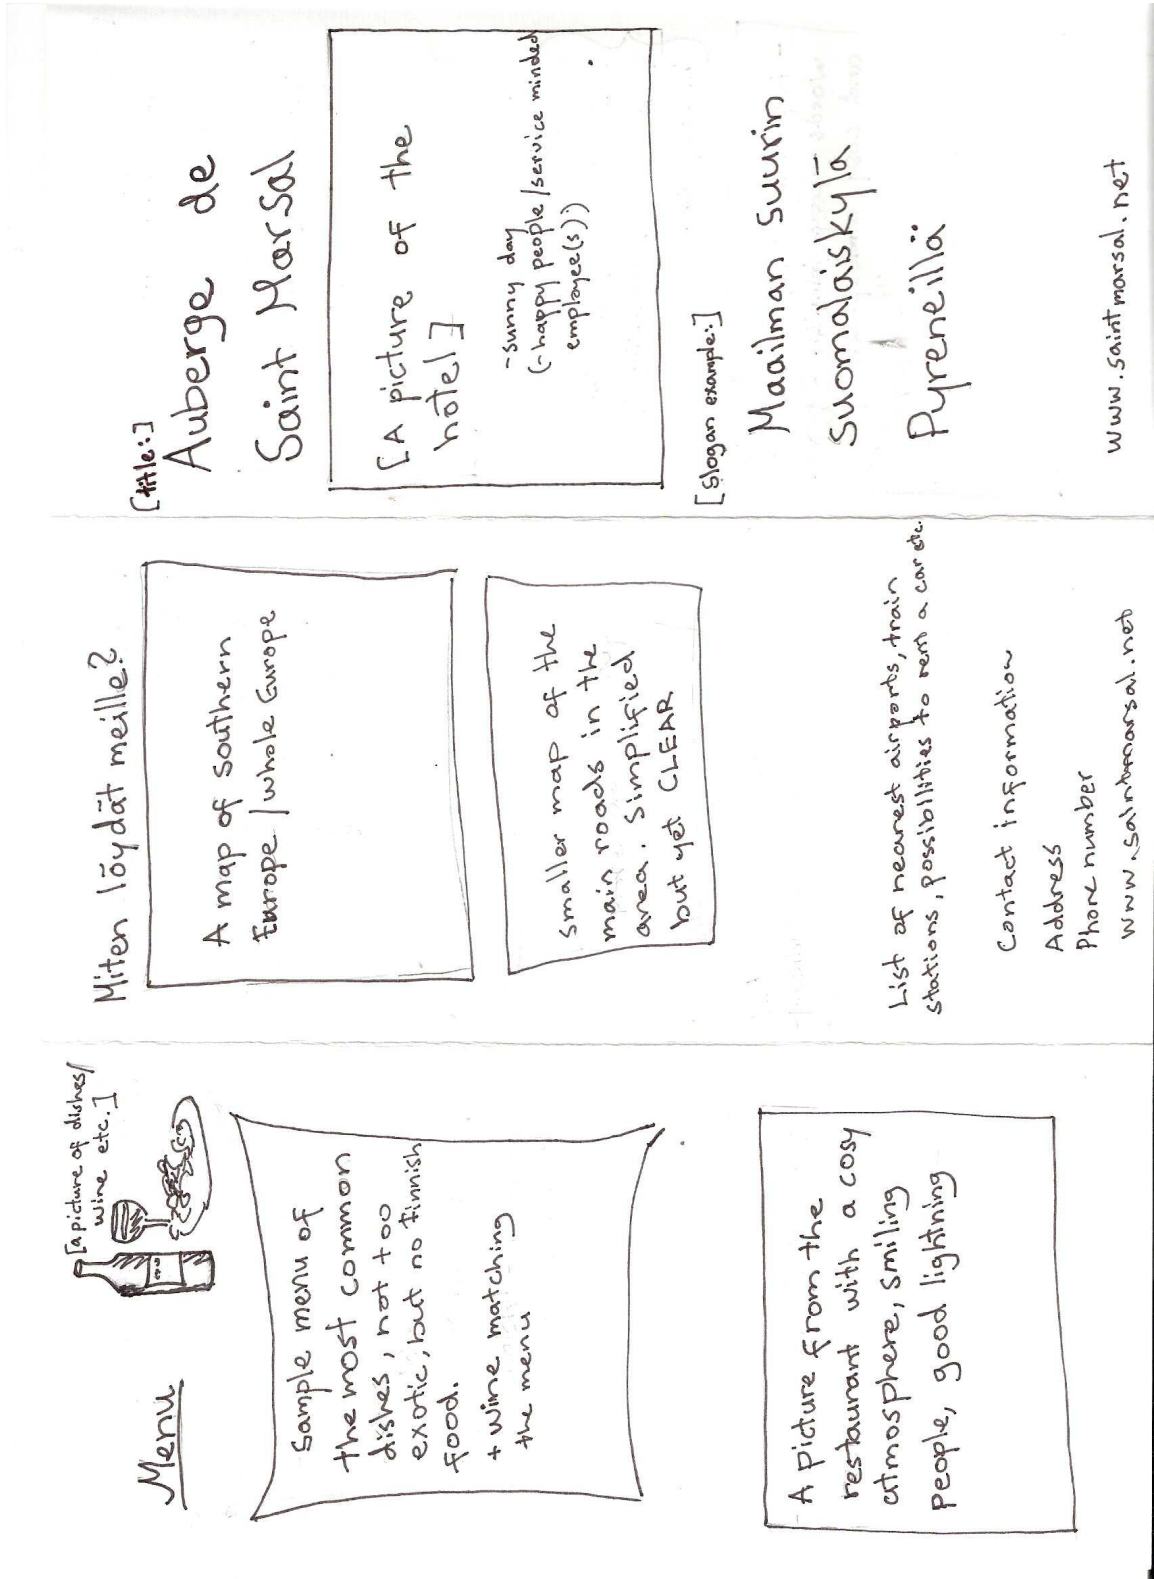 Menu
[a picture of dishes/
wine etc.]
Sample menu of
the most common
dishes, not too
exotic, but no finnish
food.
+ wine matching
the menu
A picture from the
restaurant with a cosy
atmosphere, smiling
people, good lightning
Miten löydät meille?
A map of southern
Europe / whole Europe
Smaller map of the
main roads in the
area. Simplified
but yet CLEAR
List of nearest airports, train
stations, possibilities to rent a car etc.
Contact information
Address
Phone number
www.saintmarsal.net
[title:]
Auberge de
Saint Marsal
[A picture of the
hotel]
-sunny day
(-happy people/service minded
employee(s))
[slogan example:]
Maailman suurin
Suomalaiskylä
Pyreneillä
www.saintmarsal.net